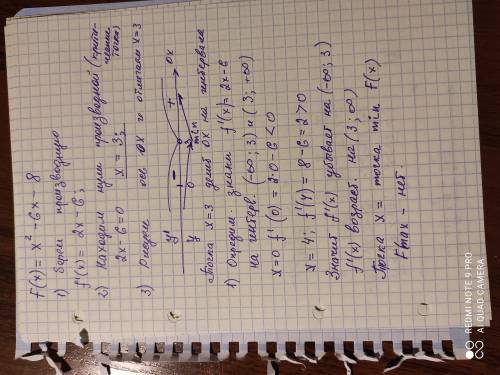 f(x) = x² - 6x - 8
1) Берем производную
f'(x) = 2x - 6;
2) Находим нули производной (крити-
ческие точки)
2x - 6 = 0 x = 3;
3) Рисуем ось ОХ и отмечаем x = 3
y' - + OX
y 3
min
Точка x = 3 делит ОХ на интервала
4) Определ. знаки f'(x) = 2x - 6
на интерв. (-∞; 3) и (3; +∞)
x = 0 f'(0) = 2·0 - 6 < 0
x = 4; f'(4) = 8 - 6 = 2 > 0
Значит f'(x) убывает на (-∞; 3)
f'(x) возраст. на (3; ∞)
Точка x = точка min F(x)
Fmax - нет.
REDMI NOTE 9 PRO
AI QUAD CAMERA